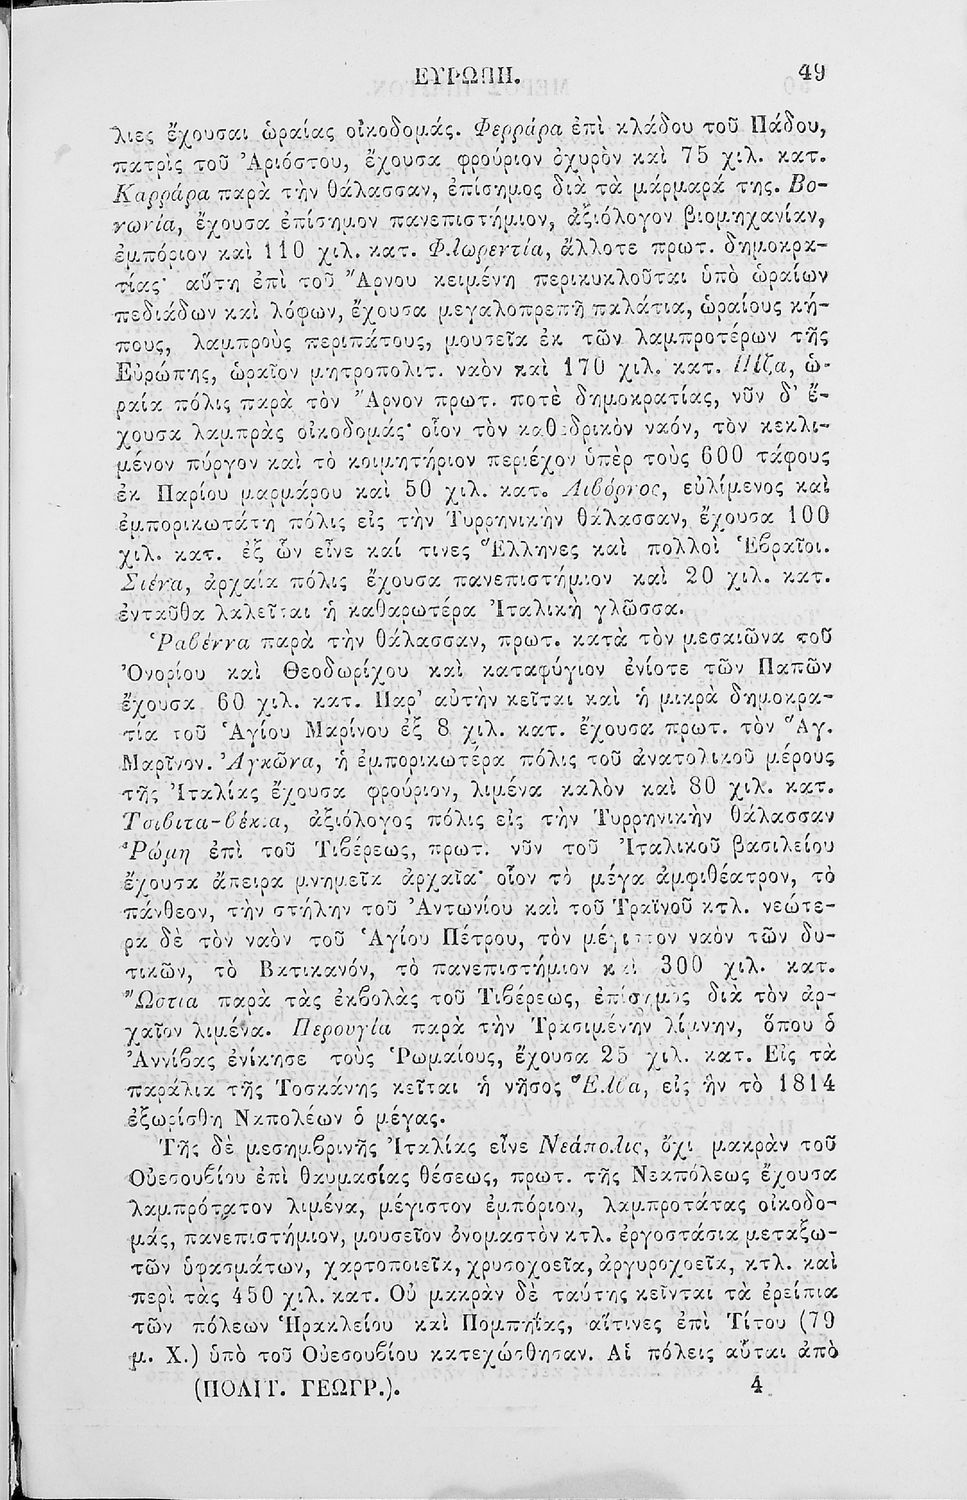 ΕΥΡΩΠΗ. 49
λιες ἔχουσαι ὡραίας οἰκοδομάς. Φερράρα ἐπὶ κλάδου τοῦ Πάδου,
πατρὶς τοῦ Ἀριόστου, ἔχουσα φρούριον ὀχυρὸν καὶ 75 χιλ. κατ.
Καρράρα παρὰ τὴν θάλασσαν, ἐπίσημος διὰ τὰ μάρμαρά της. Βο-
νωνία, ἔχουσα ἐπίσημον πανεπιστήμιον, ἀξιόλογον βιομηχανίαν,
ἐμπόριον καὶ 110 χιλ. κατ. Φλωρεντία, ἄλλοτε πρωτ. δημοκρα-
τίας· αὕτη ἐπὶ τοῦ Ἄρνου κειμένη περικυκλοῦται ὑπὸ ὡραίων
πεδιάδων καὶ λόφων, ἔχουσα μεγαλοπρεπῆ παλάτια, ὡραίους κή-
πους, λαμπροὺς περιπάτους, μουσεῖα ἐκ τῶν λαμπροτέρων τῆς
Εὐρώπης, ὡραῖον μητροπολιτ. ναὸν καὶ 170 χιλ. κατ. Πίζα, ὡ-
ραία πόλις παρὰ τὸν Ἄρνον πρωτ. ποτὲ δημοκρατίας, νῦν δ' ἔ-
χουσα λαμπρὰς οἰκοδομάς· οἷον τὸν καθεδρικὸν ναόν, τὸν κεκλι-
μένον πύργον καὶ τὸ κοιμητήριον περιέχον ὑπὲρ τοὺς 600 τάφους
ἐκ Παρίου μαρμάρου καὶ 50 χιλ. κατ. Λιβόρνος, εὐλίμενος καὶ
ἐμπορικωτάτη πόλις εἰς τὴν Τυρρηνικὴν θάλασσαν, ἔχουσα 100
χιλ. κατ. ἐξ ὧν εἶνε καί τινες Ἕλληνες καὶ πολλοὶ Ἑβραῖοι.
Σιένα, ἀρχαία πόλις ἔχουσα πανεπιστήμιον καὶ 20 χιλ. κατ.
ἐνταῦθα λαλεῖται ἡ καθαρωτέρα Ἰταλικὴ γλῶσσα.
Ῥαβέννα παρὰ τὴν θάλασσαν, πρωτ. κατὰ τὸν μεσαιῶνα τοῦ
Ὀνορίου καὶ Θεοδωρίχου καὶ καταφύγιον ἐνίοτε τῶν Παπῶν
ἔχουσα 60 χιλ. κατ. Παρ' αὐτὴν κεῖται καὶ ἡ μικρὰ δημοκρα-
τία τοῦ Ἁγίου Μαρίνου ἐξ 8 χιλ. κατ. ἔχουσα πρωτ. τὸν Ἅγ.
Μαρῖνον. Ἀγκῶνα, ἡ ἐμπορικωτέρα πόλις τοῦ ἀνατολικοῦ μέρους
τῆς Ἰταλίας ἔχουσα φρούριον, λιμένα καλὸν καὶ 80 χιλ. κατ.
Τσιβιτα-βέκια, ἀξιόλογος πόλις εἰς τὴν Τυρρηνικὴν θάλασσαν
Ῥώμη ἐπὶ τοῦ Τιβέρεως, πρωτ. νῦν τοῦ Ἰταλικοῦ βασιλείου
ἔχουσα ἄπειρα μνημεῖα ἀρχαῖα· οἷον τὸ μέγα ἀμφιθέατρον, τὸ
πάνθεον, τὴν στήλην τοῦ Ἀντωνίου καὶ τοῦ Τραϊνοῦ κτλ. νεώτε-
ρα δὲ τὸν ναὸν τοῦ Ἁγίου Πέτρου, τὸν μέγιστον ναὸν τῶν δυ-
τικῶν, τὸ Βατικανόν, τὸ πανεπιστήμιον καὶ 300 χιλ. κατ.
Ὤστια παρὰ τὰς ἐκβολὰς τοῦ Τιβέρεως, ἐπίσημος διὰ τὸν ἀρ-
χαῖον λιμένα. Περουγία παρὰ τὴν Τρασιμένην λίμνην, ὅπου ὁ
Ἀννίβας ἐνίκησε τοὺς Ῥωμαίους, ἔχουσα 25 χιλ. κατ. Εἰς τὰ
παράλια τῆς Τοσκάνης κεῖται ἡ νῆσος Ἔλβα, εἰς ἣν τὸ 1814
ἐξωρίσθη Ναπολέων ὁ μέγας.
Τῆς δὲ μεσημβρινῆς Ἰταλίας εἶνε Νεάπολις, ὄχι μακρὰν τοῦ
Οὐεσουβίου ἐπὶ θαυμασίας θέσεως, πρωτ. τῆς Νεαπόλεως ἔχουσα
λαμπρότατον λιμένα, μέγιστον ἐμπόριον, λαμπροτάτας οἰκοδο-
μάς, πανεπιστήμιον, μουσεῖον ὀνομαστὸν κτλ. ἐργοστάσια μεταξω-
τῶν ὑφασμάτων, χαρτοποιεῖα, χρυσοχοεῖα, ἀργυροχοεῖα, κτλ. καὶ
περὶ τὰς 450 χιλ. κατ. Οὐ μακρὰν δὲ ταύτης κεῖνται τὰ ἐρείπια
τῶν πόλεων Ἡρακλείου καὶ Πομπηΐας, αἵτινες ἐπὶ Τίτου (79
μ. Χ.) ὑπὸ τοῦ Οὐεσουβίου κατεχώσθησαν. Αἱ πόλεις αὗται ἀπὸ
(ΠΟΛΙΤ. ΓΕΩΓΡ.). 4